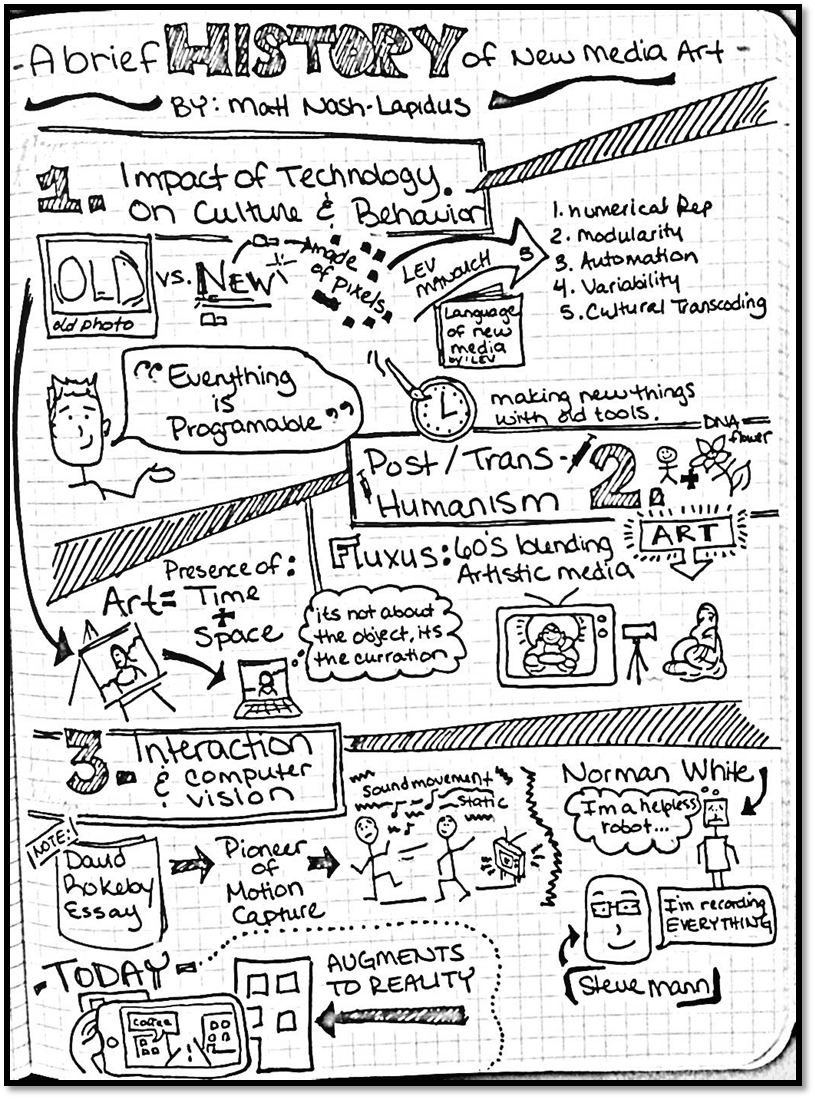 - A brief HISTORY of New Media Art -
BY: Matt Nash-Lapidus
1. Impact of Technology
On Culture & Behavior
OLD
old photo
vs. NEW
made
of pixels
LEV
MANOVICH
5
Language
of new
media
BY: LEV
1. Numerical Rep
2. Modularity
3. Automation
4. Variability
5. Cultural Transcoding
"Everything
is
Programable"
making new things
with old tools.
Post/Trans-
Humanism
2.
DNA
flower
+
ART
Fluxus: 60's blending
Artistic media
Presence of:
Art = Time
+
Space
its not about
the object, its
the curration
3. Interaction
& computer
vision
NOTE:
David
Rokeby
Essay
Pioneer
of
Motion
Capture
Sound movement
Static
Norman White
I'm a helpless
robot...
I'm recording
EVERYTHING
Steve Mann
- TODAY -
coffee
AUGMENTS
TO REALITY